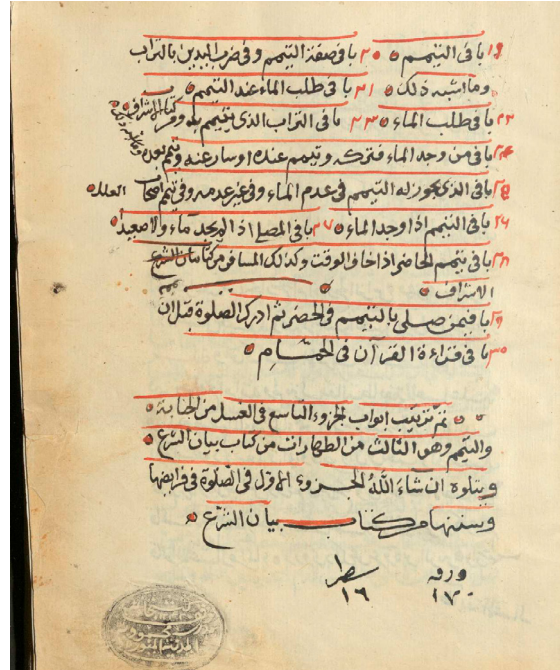 ١٩ باب في التيمم ٢٠ باب في صفة التيمم وفي ضرب اليدين بالتراب
وما اشبه ذلك ٢١ باب في طلب الماء عند التيمم
٢٢ باب في طلب الماء ٢٣ باب في التراب الذي يتيمم به
٢٤ باب في من وجد الماء فتركه وتيمم عنده او سار عنه وتيمم بعده
٢٥ باب في الذي يجوز له التيمم في عدم الماء وفي غير عدمه وفي تيمم اصحاب العلل
٢٦ باب في التيمم اذا وجد الماء ٢٧ باب في المصلي اذا لم يجد ماء ولا صعيدا
٢٨ باب في تيمم الحاضر اذا خاف الوقت وكذلك المسافر من كتاب
الاشراف
٢٩ باب فيمن صلى بالتيمم في الحضر ثم ادرك الصلوة قبل ان
٣٠ باب في قراءة القرآن في الحمام
تم ترتيب ابواب الجزوء التاسع في الغسل من الجنابة
والتيمم وهو الثالث من الطهارات من كتاب بيان الشرع
ويتلوه ان شاء الله الجزوء الاول في الصلوة في فرايضها
وسننها من كتاب بيان الشرع
ورقه سطر
١٧٠ ١٦